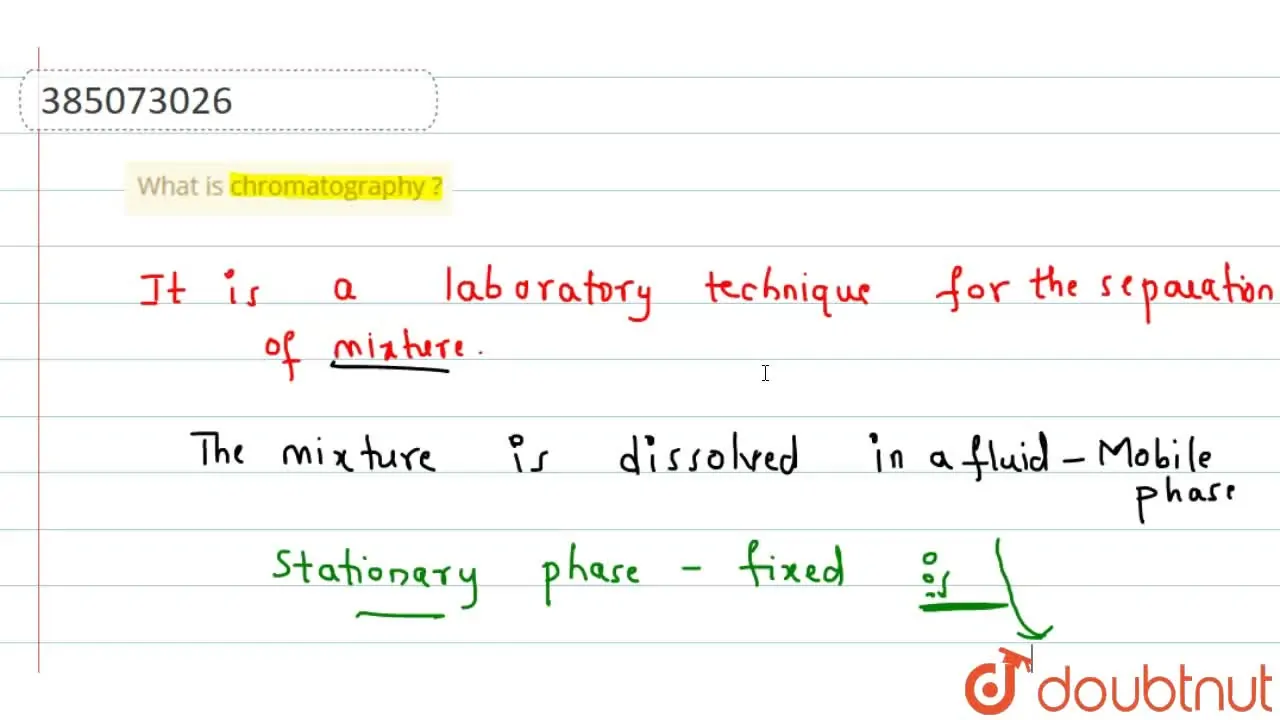 385073026
What is chromatography ?
It is a laboratory technique for the separation
of mixture.
The mixture is dissolved in a fluid - Mobile
phase
Stationary phase - fixed
doubtnut